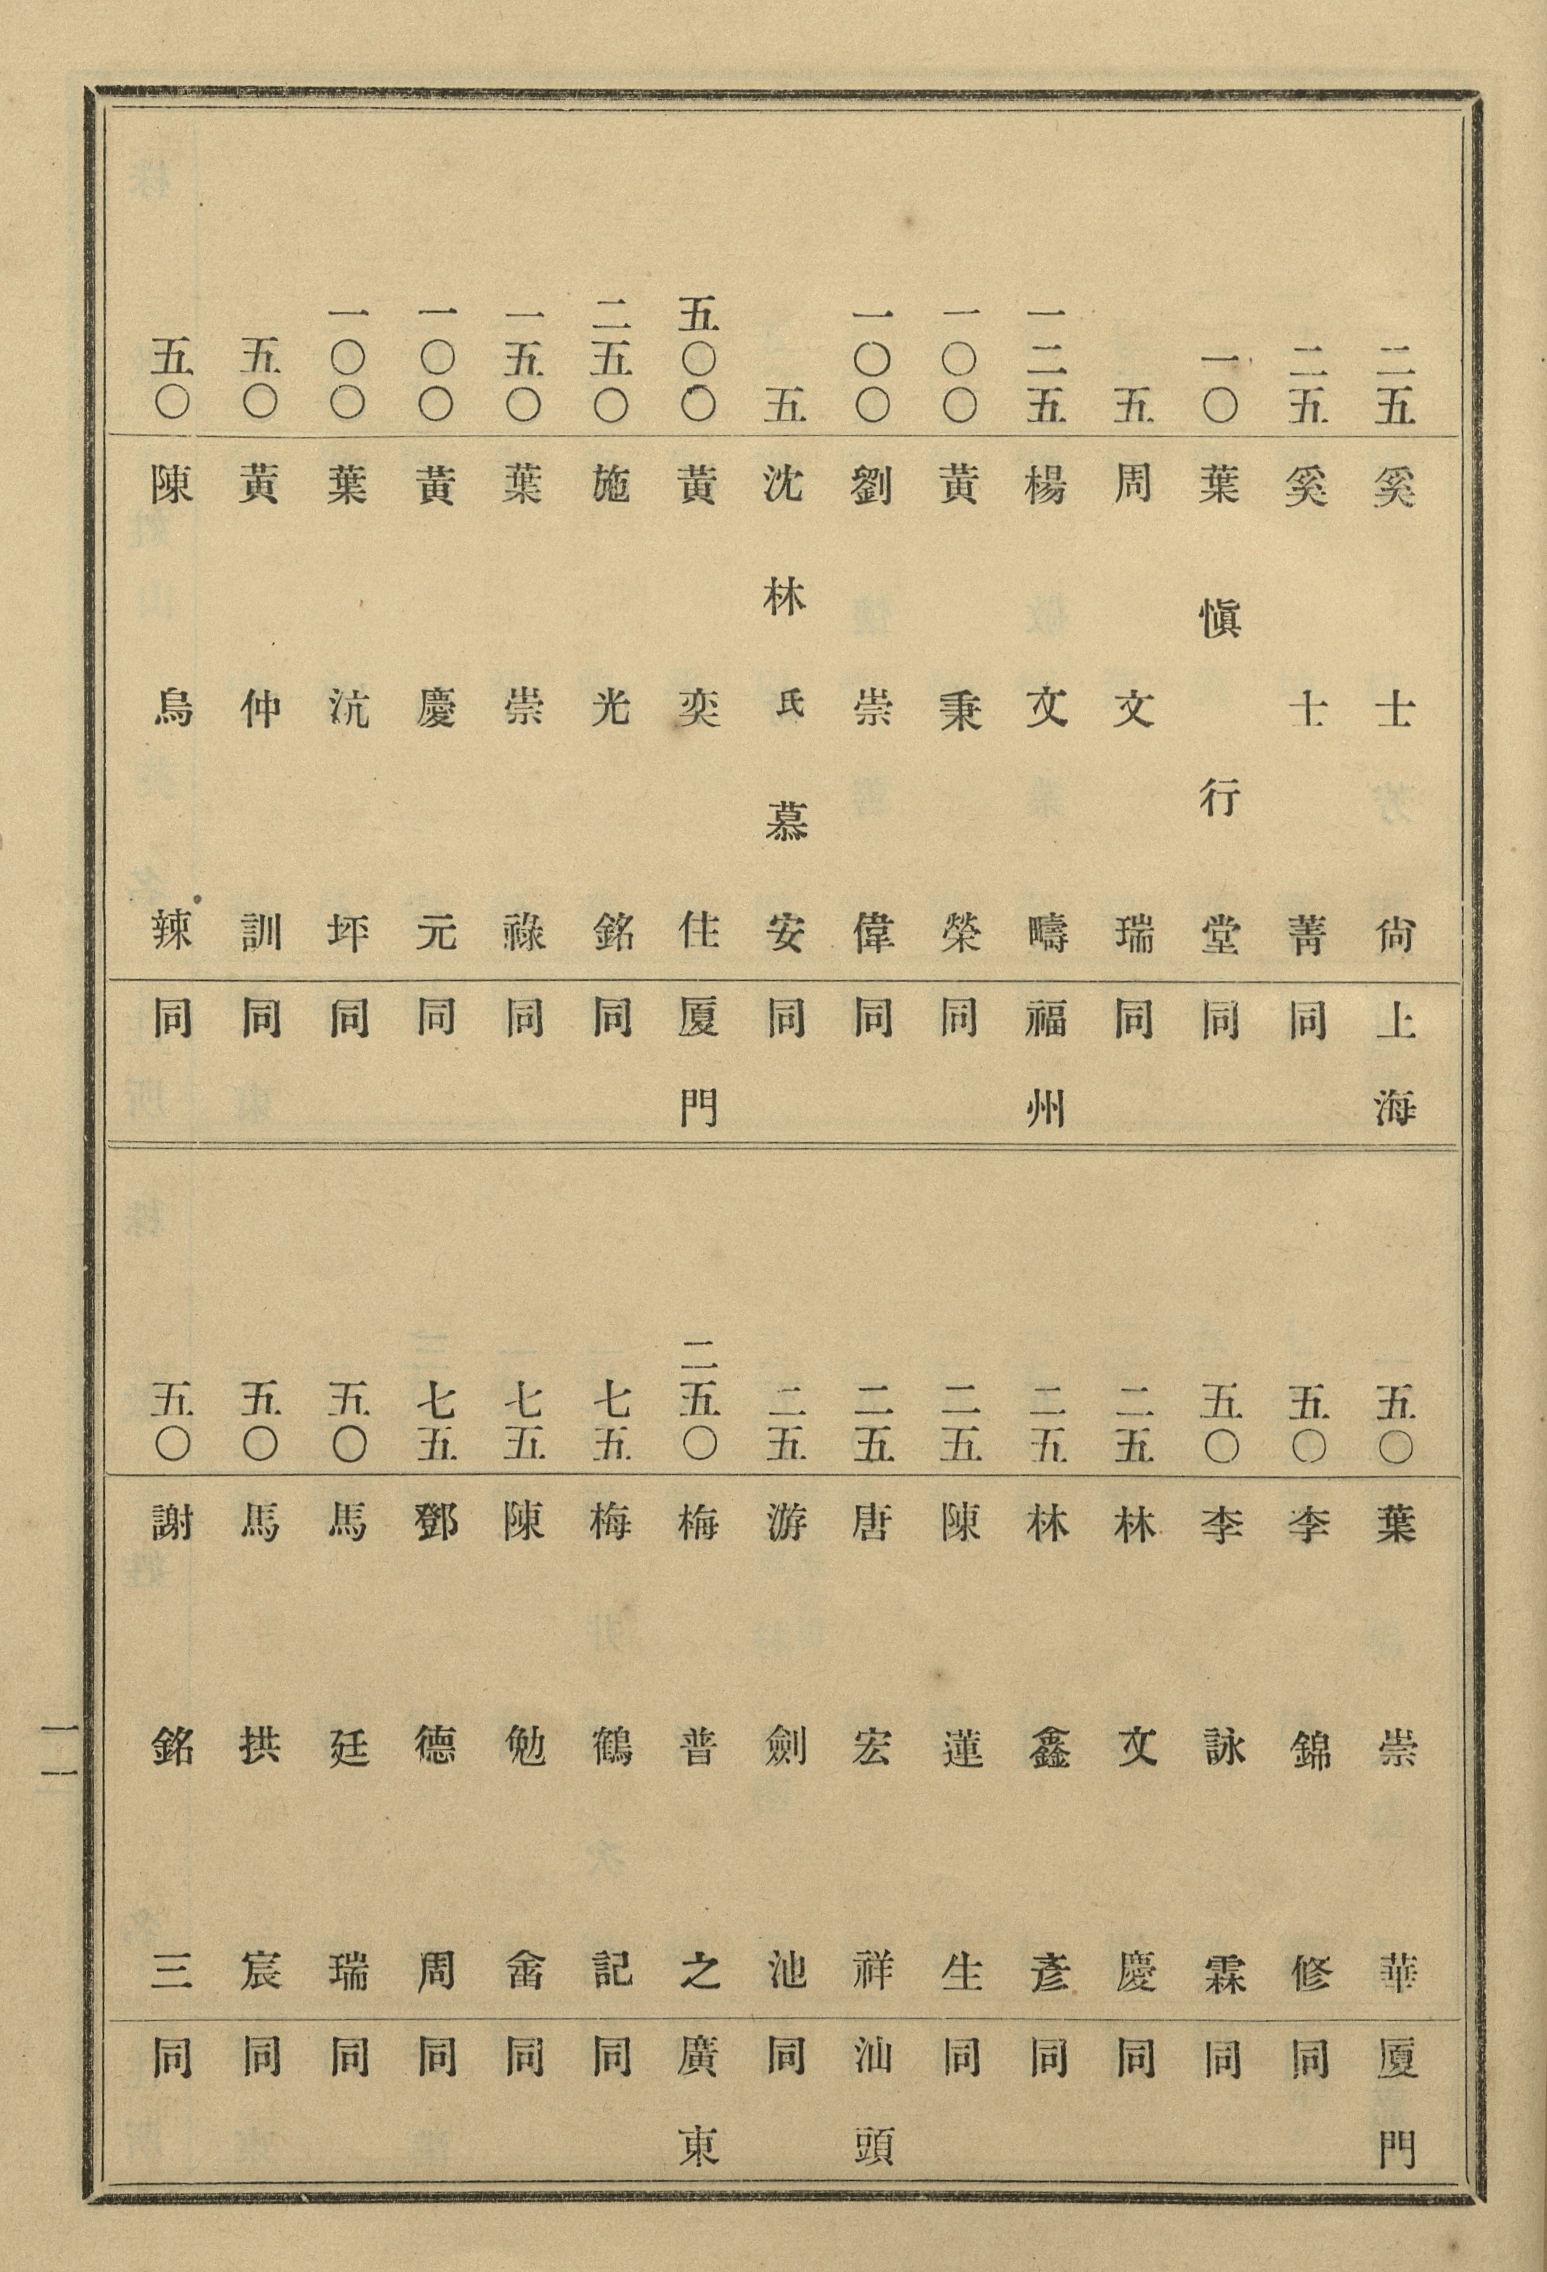 二五 奚士尙 上海
二五 奚士菁 同
一〇 葉愼行堂 同
五 周文瑞 同
一二五 楊文疇 福州
一〇〇 黃秉榮 同
一〇〇 劉崇偉 同
五 沈林氏慕安 同
五〇〇 黃奕住 厦門
二五〇 施光銘 同
一五〇 葉崇祿 同
一〇〇 黃慶元 同
一〇〇 葉沆坪 同
五〇 黃仲訓 同
五〇 陳烏辣 同
五〇 葉崇華 厦門
五〇 李錦修 同
五〇 李詠霖 同
二五 林文慶 同
二五 林鑫彥 同
二五 陳蓮生 同
二五 唐宏祥 汕頭
二五 游劍池 同
二五〇 梅普之 廣東
七五 梅鶴記 同
七五 陳勉畬 同
七五 鄧德周 同
五〇 馬廷瑞 同
五〇 馬拱宸 同
五〇 謝銘三 同
一一